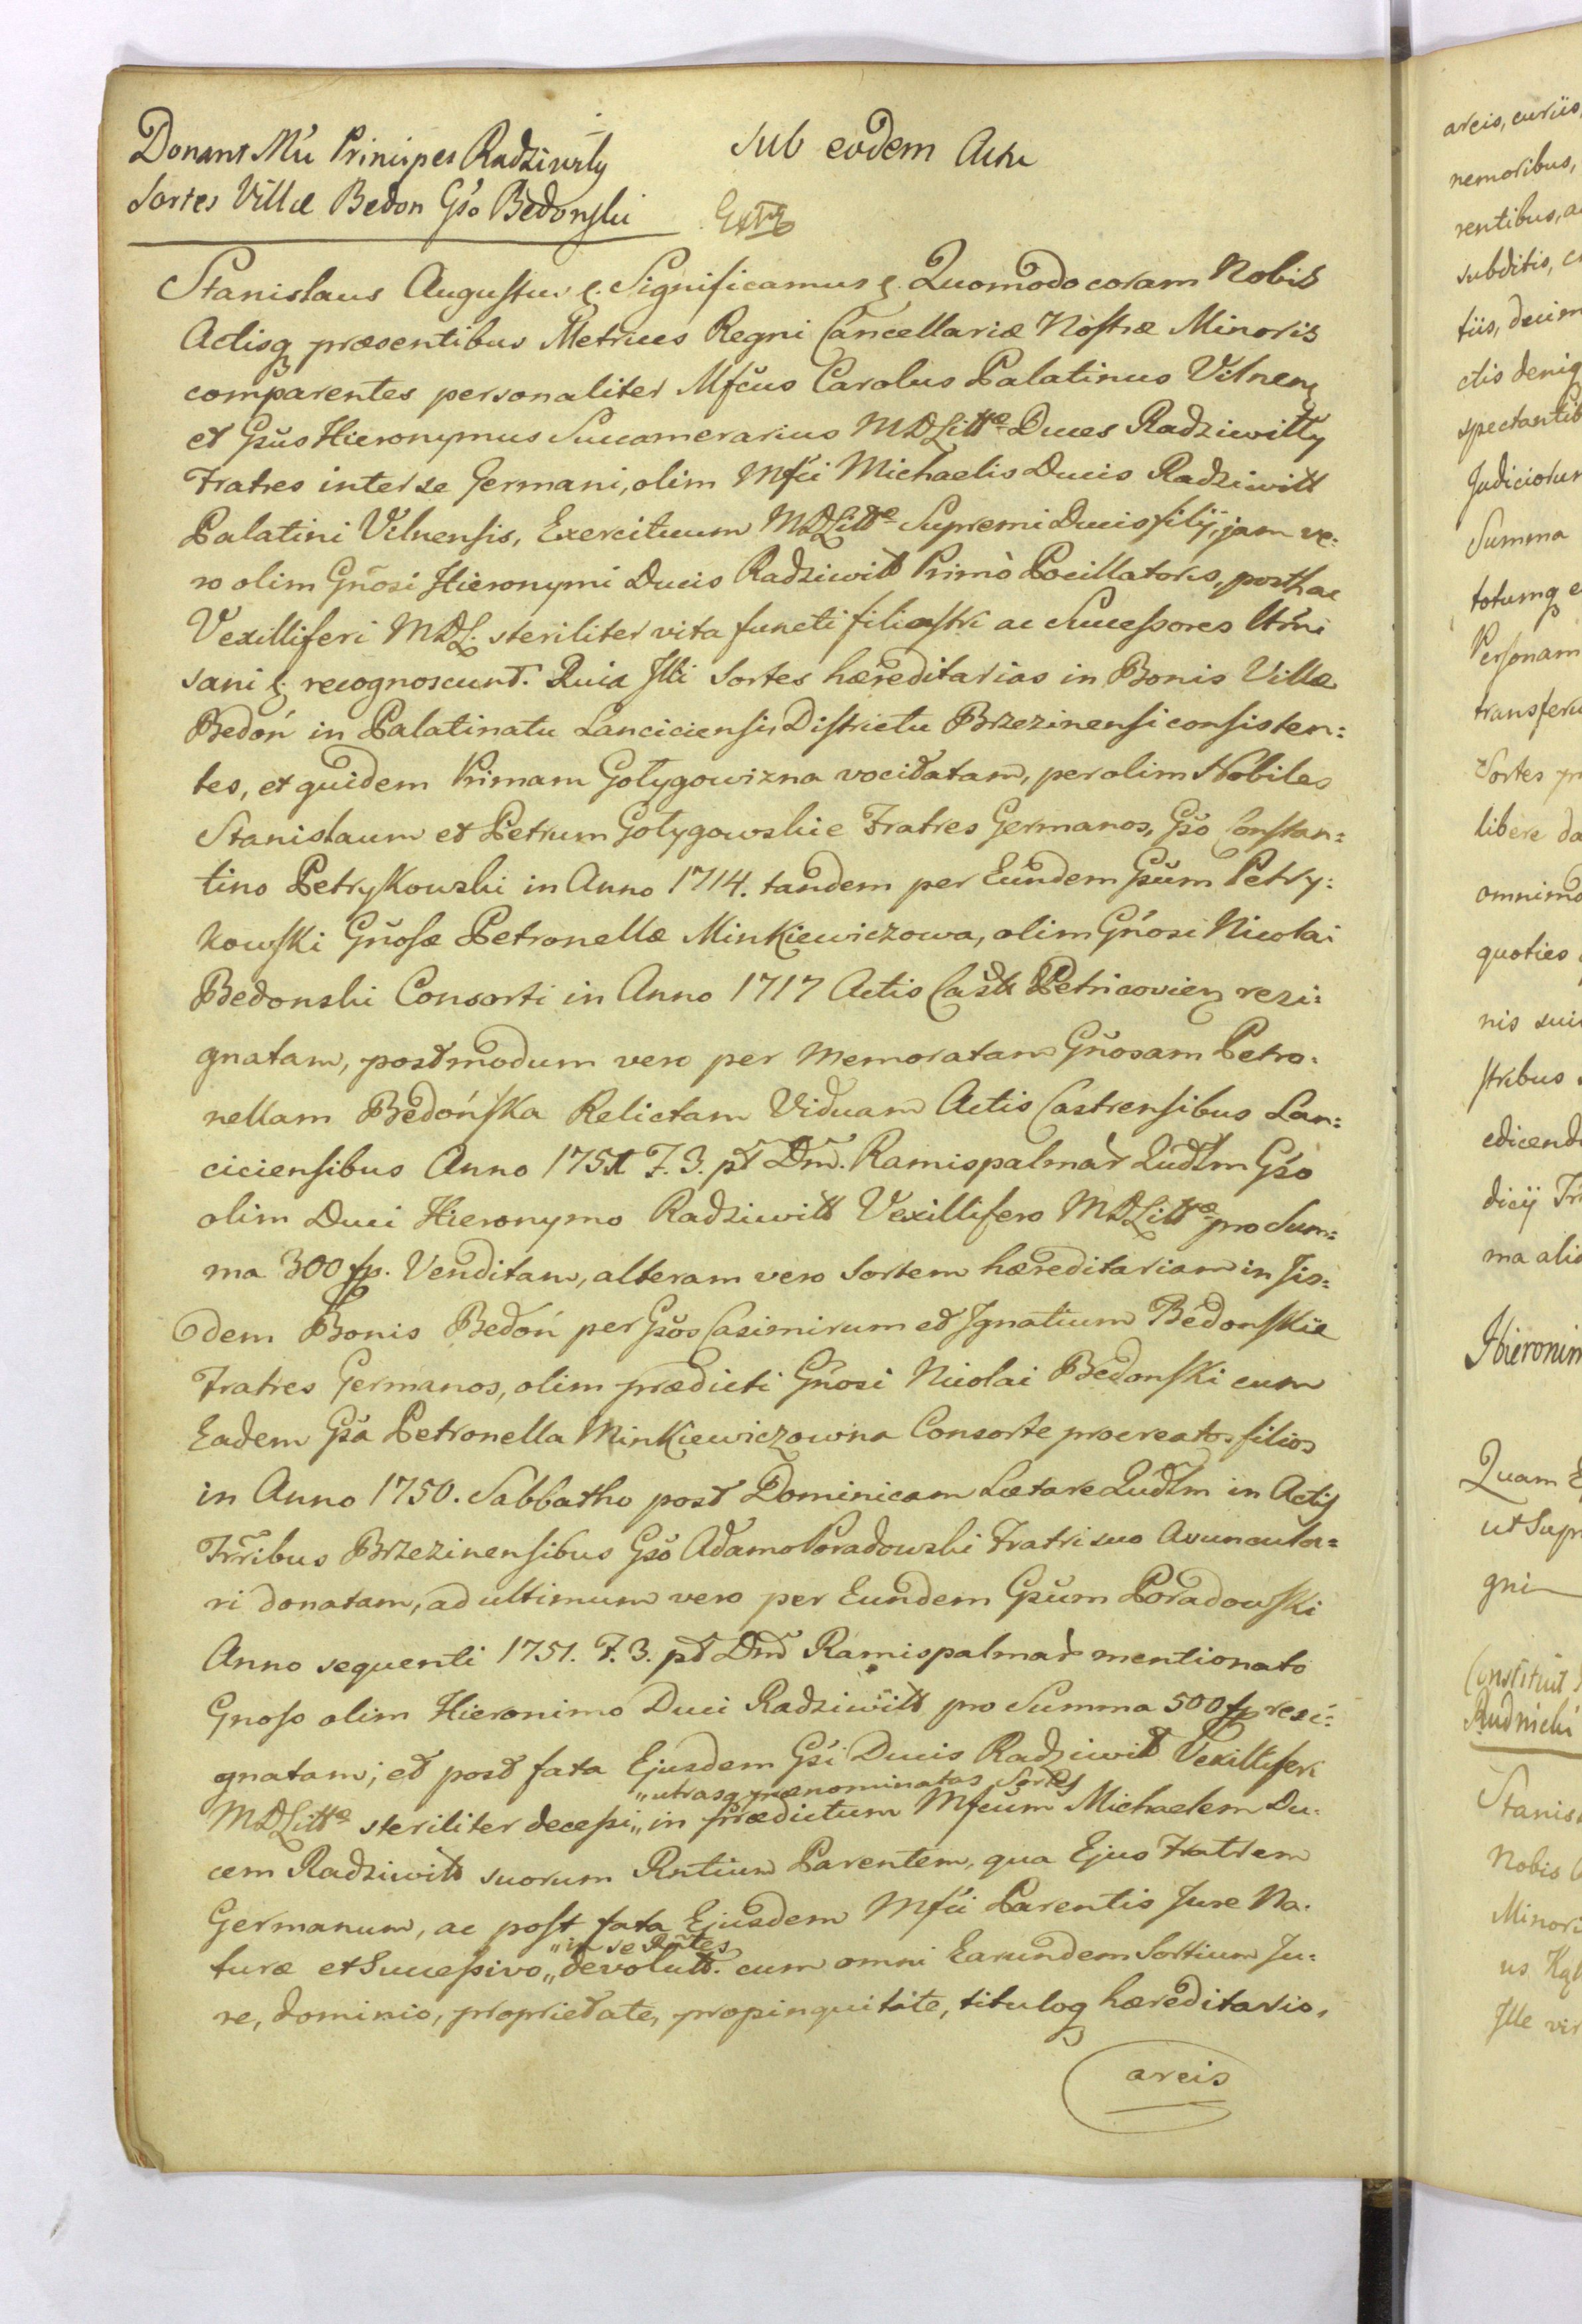 Donant Mci Principes Radziwiły
Sortes Villæ Bedon Gso Bedonski
Sub eodem Actu
Stanislaus Augustus &. Significamus &. Quomodo coram Nobis
Actisq præsentibus Metrices Regni Cancellariæ Nostræ Minoris
comparentes personaliter Mfcus Carolus Palatinus Vilnen
et Gsus Hieronymus Succamerarius MDLittæ Duces Radziwiłły
Fratres inter se Germani, olim Mfci Michaelis Ducis Radziwiłł
Palatini Vilnensis, Exercituum MDLittæ Supremi Ducis filij, jam ve:
ro olim Gnosi Hieronymi Ducis Radziwiłł Primò Pocillatoris, posthac
Vexilliferi MDL. steriliter vita functi filiastri ac Successores Utrni
sani &. recognoscunt. Quia Illi Sortes hæreditarias in Bonis Villæ
Bedoń in Palatinatu Lanciciensi, Districtu Brzezinensi consisten:
tes, et quidem Primam Gołygowizna vocitatam, per olim Nobiles
Stanislaum et Petrum Gołygowskie Fratres Germanos, Gso Constan:
tino Petrykowski in Anno 1714. tandem per Eundem Gsum Petry:
kowski Gnosæ Petronellæ Minkiewiczowa, olim Gnosi Nicolai
Bedonski Consorti in Anno 1717 Actis Castr Petricovien resi:
gnatam, postmodum vero per memoratam Gnosam Petro:
nellam Bedońska Relictam Viduam Actis Castrensibus Lan:
ciciensibus Anno 1751 F. 3. pt Dm. Ramispalmar Qudlm Gso
olim Duci Hieronymo Radziwiłł Vexillifero MDLittæ pro Sum:
ma 300 fp. Venditam, alteram vero Sortem hæreditariam in Iis:
dem Bonis Bedoń per Gsos Casimirum et Ignatium Bedonskie
Fratres Germanos, olim prædicti Gnosi Nicolai Bedonski cum
Eadem Gsa Petronella Minkiewiczowna Consorte procreatos filios
in Anno 1750. Sabbatho post Dominicam Lætare Qudlm in Actis
Trribus Brzezinensibus Gso Adamo Poradowski Fratri suo Avuncula:
ri donatam, ad ultimum vero per Eundem Gsum Poradowski
Anno sequenti 1751. F. 3. pt Dm Ramispalmar mentionato
Gnoso olim Hieronimo Duci Radziwiłł pro Summa 500 fp resi:
gnatam; et post fata Ejusdem Gsi Ducis Radziwiłł Vexilliferi
„utrasq prænominatas Sortes
MDLittæ steriliter decessi „ in prædictum Mfcum Michaelem Du:
cem Radziwiłł suorum Rntium Parentem, qua Ejus Fratrem
Germanum, ac post fata Ejusdem Mfci Parentis Jure Na:
„in se Rntes
turæ et Successivo „ devolutt. cum omni Earundem Sortium Ju:
re, dominio, proprietate, propinquitate, tituloq hæreditario,
areis
areis, curiis,
nemoribus,
rentibus, a
subditis, c
tiis, decim
ctis deniq
spectantib
Judiciorum
Summa
totumq e
Personam
transferu
Sortes pr
libere da
omnimo
quoties
nis sui
stribus
edicend
dicij Tr
ma alio
Hieronim
Quam E
ut Supr
gni
Constituit
Rudnicki
Stanis
Nobis
Minori
us
Ille vir